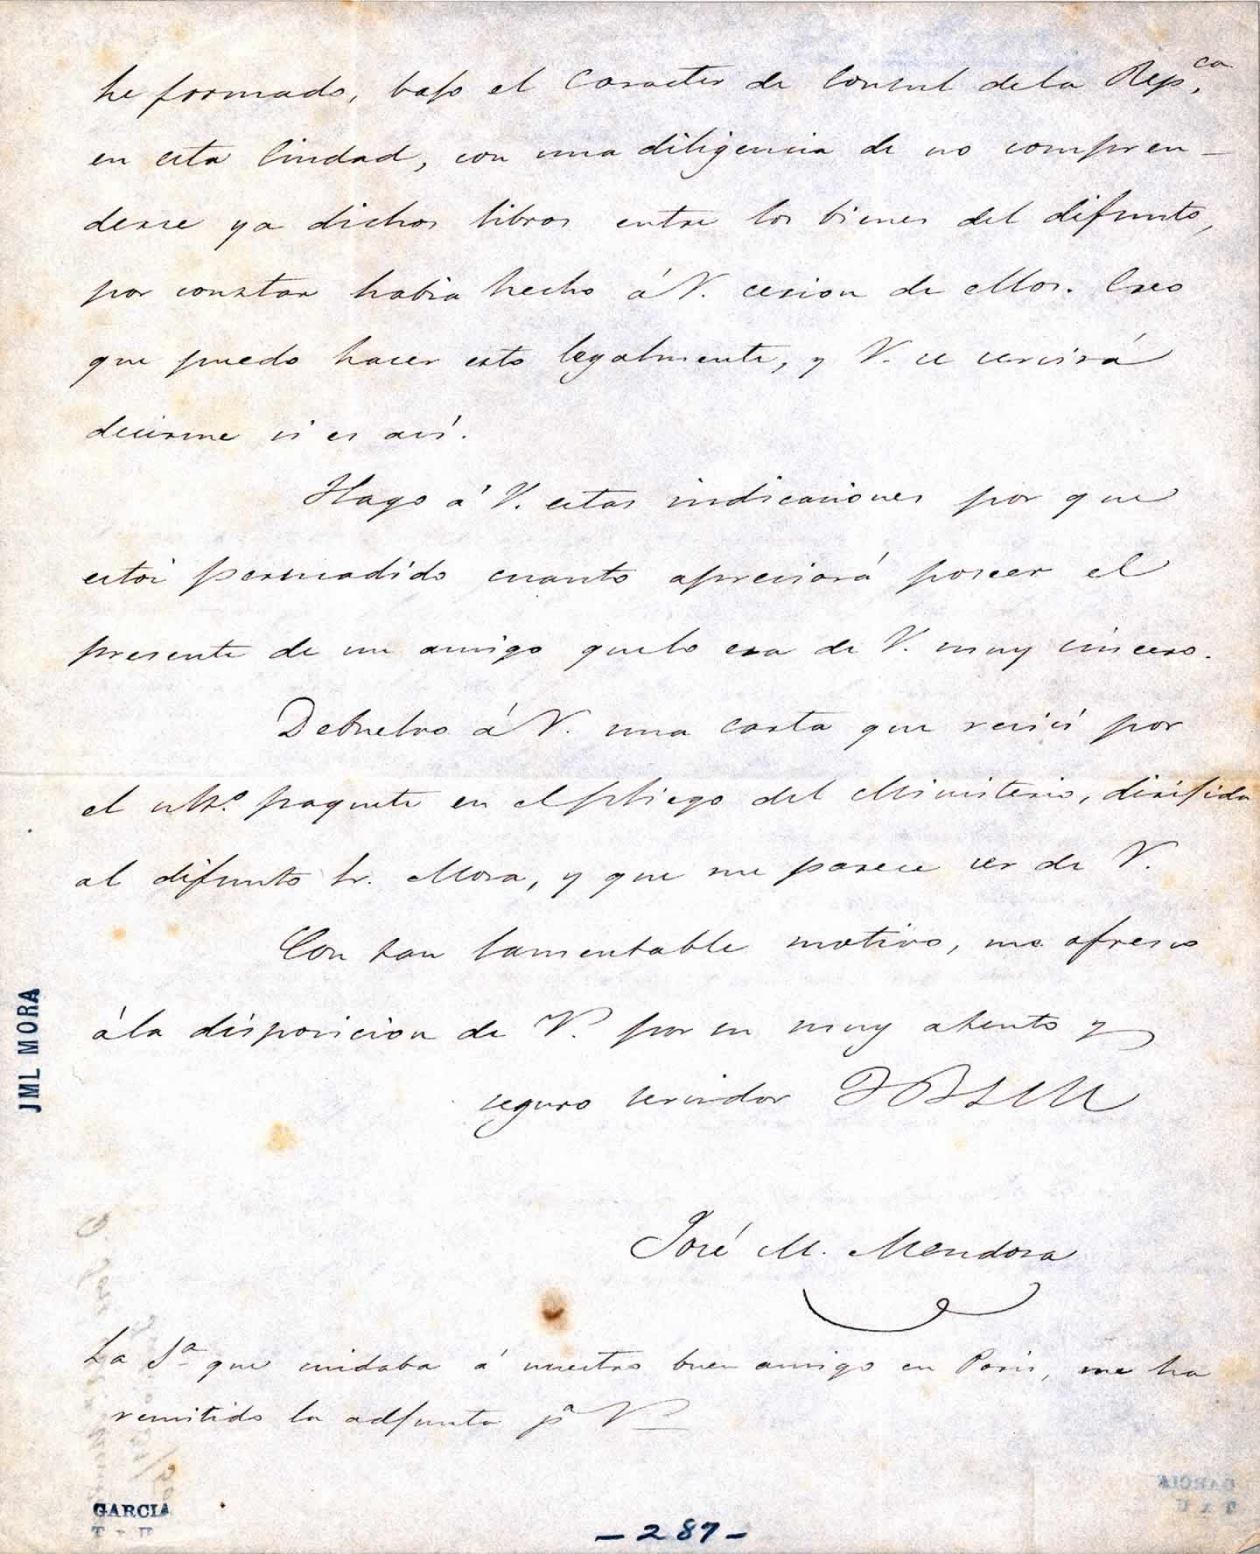 he formado, bajo el Caracter de Consul dela Rep.ca
en esta Ciudad, con una diligencia de no compren-
derse ya dichos libros entre los bienes del difunto,
por constar habia hecho á V. cesion de ellos. Creo
que puedo hacer esto legalmente, y V. se servirá
decirme si es asi.
Hago á V. estas indicaciones por que
estoi persuadido cuanto apreciará poseer el
presente de un amigo quelo era de V. muy sincero.
Debuelvo á V. una carta que recivi por
el ult.o paquete en el pliego del Ministerio, dirijida
al difunto Sr. Mora, y que me parece ser de V.
Con tan lamentable motivo, me ofresco
ála disposicion de V. por su muy atento y
seguro servidor QBSM
José M. Mendoza
La S.a que cuidaba á nuestro buen amigo en Paris, me ha
remitido la adjunta p.a V
JML MORA
GARCIA
- 287 -